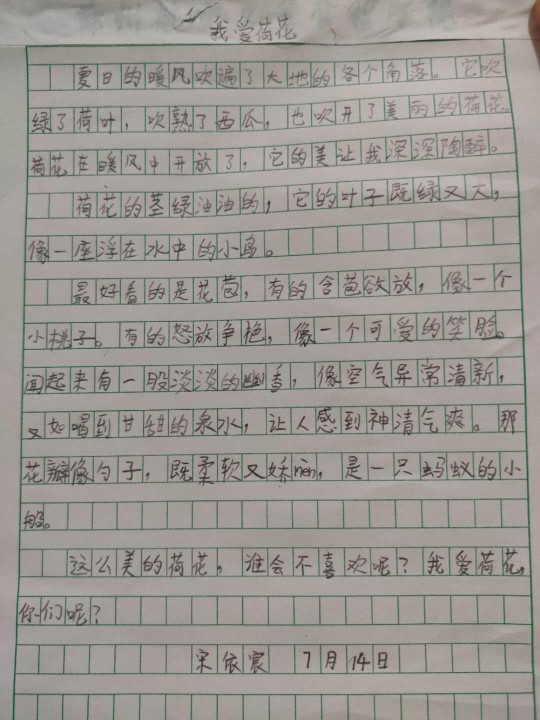 我爱荷花
夏日的暖风吹遍了大地的各个角落。它吹
绿了荷叶，吹熟了西瓜，也吹开了美丽的荷花。
荷花在暖风中开放了，它的美让我深深陶醉。
荷花的茎绿油油的，它的叶子既绿又大，
像一座浮在水中的小岛。
最好看的是花苞，有的含苞欲放，像一个
小桃子。有的怒放争艳，像一个可爱的笑脸。
闻起来有一股淡淡的幽香，像空气异常清新，
又如喝到甘甜的泉水，让人感到神清气爽。那
花瓣像勺子，既柔软又娇nèn，是一只蚂蚁的小
船。
这么美的荷花，谁会不喜欢呢？我爱荷花，
你们呢？
宋依宸 7月14日